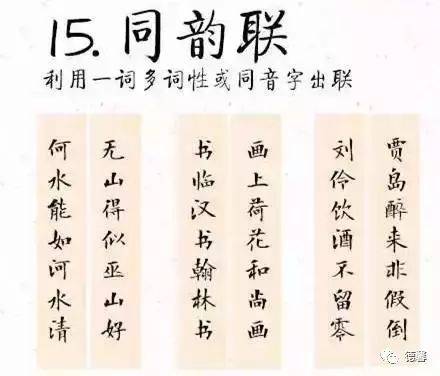 15. 同韵联
利用一词多词性或同音字出联
无山得似巫山好
何水能如河水清
画上荷花和尚画
书临汉书翰林书
贾岛醉来非假倒
刘伶饮酒不留零
德馨